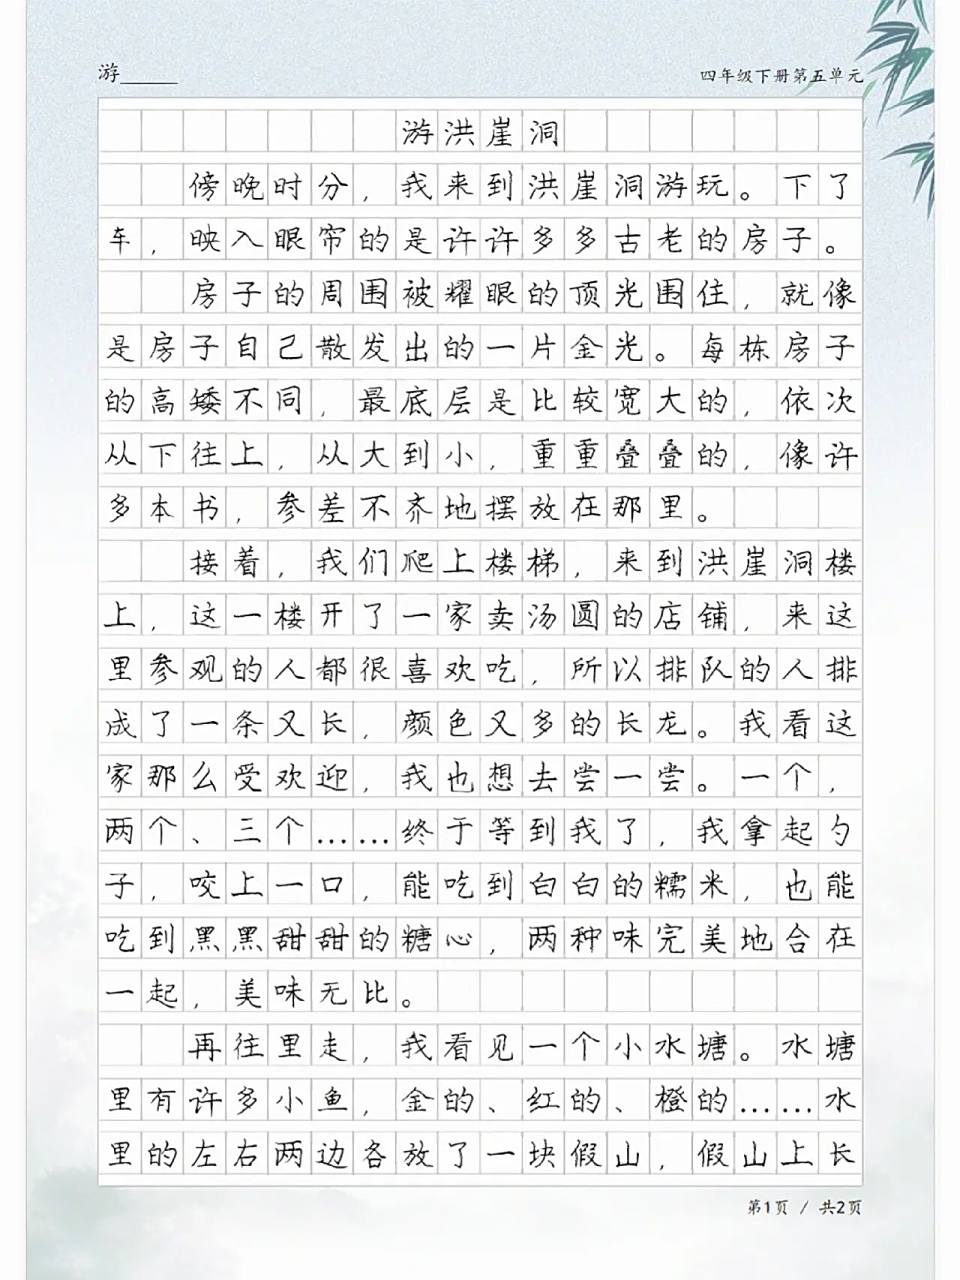 游_____
四年级下册第五单元
游洪崖洞
傍晚时分，我来到洪崖洞游玩。下了
车，映入眼帘的是许许多多古老的房子。
房子的周围被耀眼的顶光围住，就像
是房子自己散发出的一片金光。每栋房子
的高矮不同，最底层是比较宽大的，依次
从下往上，从大到小，重重叠叠的，像许
多本书，参差不齐地摆放在那里。
接着，我们爬上楼梯，来到洪崖洞楼
上，这一楼开了一家卖汤圆的店铺，来这
里参观的人都很喜欢吃，所以排队的人排
成了一条又长，颜色又多的长龙。我看这
家那么受欢迎，我也想去尝一尝。一个，
两个、三个……终于等到我了，我拿起勺
子，咬上一口，能吃到白白的糯米，也能
吃到黑黑甜甜的糖心，两种味完美地合在
一起，美味无比。
再往里走，我看见一个小水塘。水塘
里有许多小鱼，金的、红的、橙的……水
里的左右两边各放了一块假山，假山上长
第1页 / 共2页